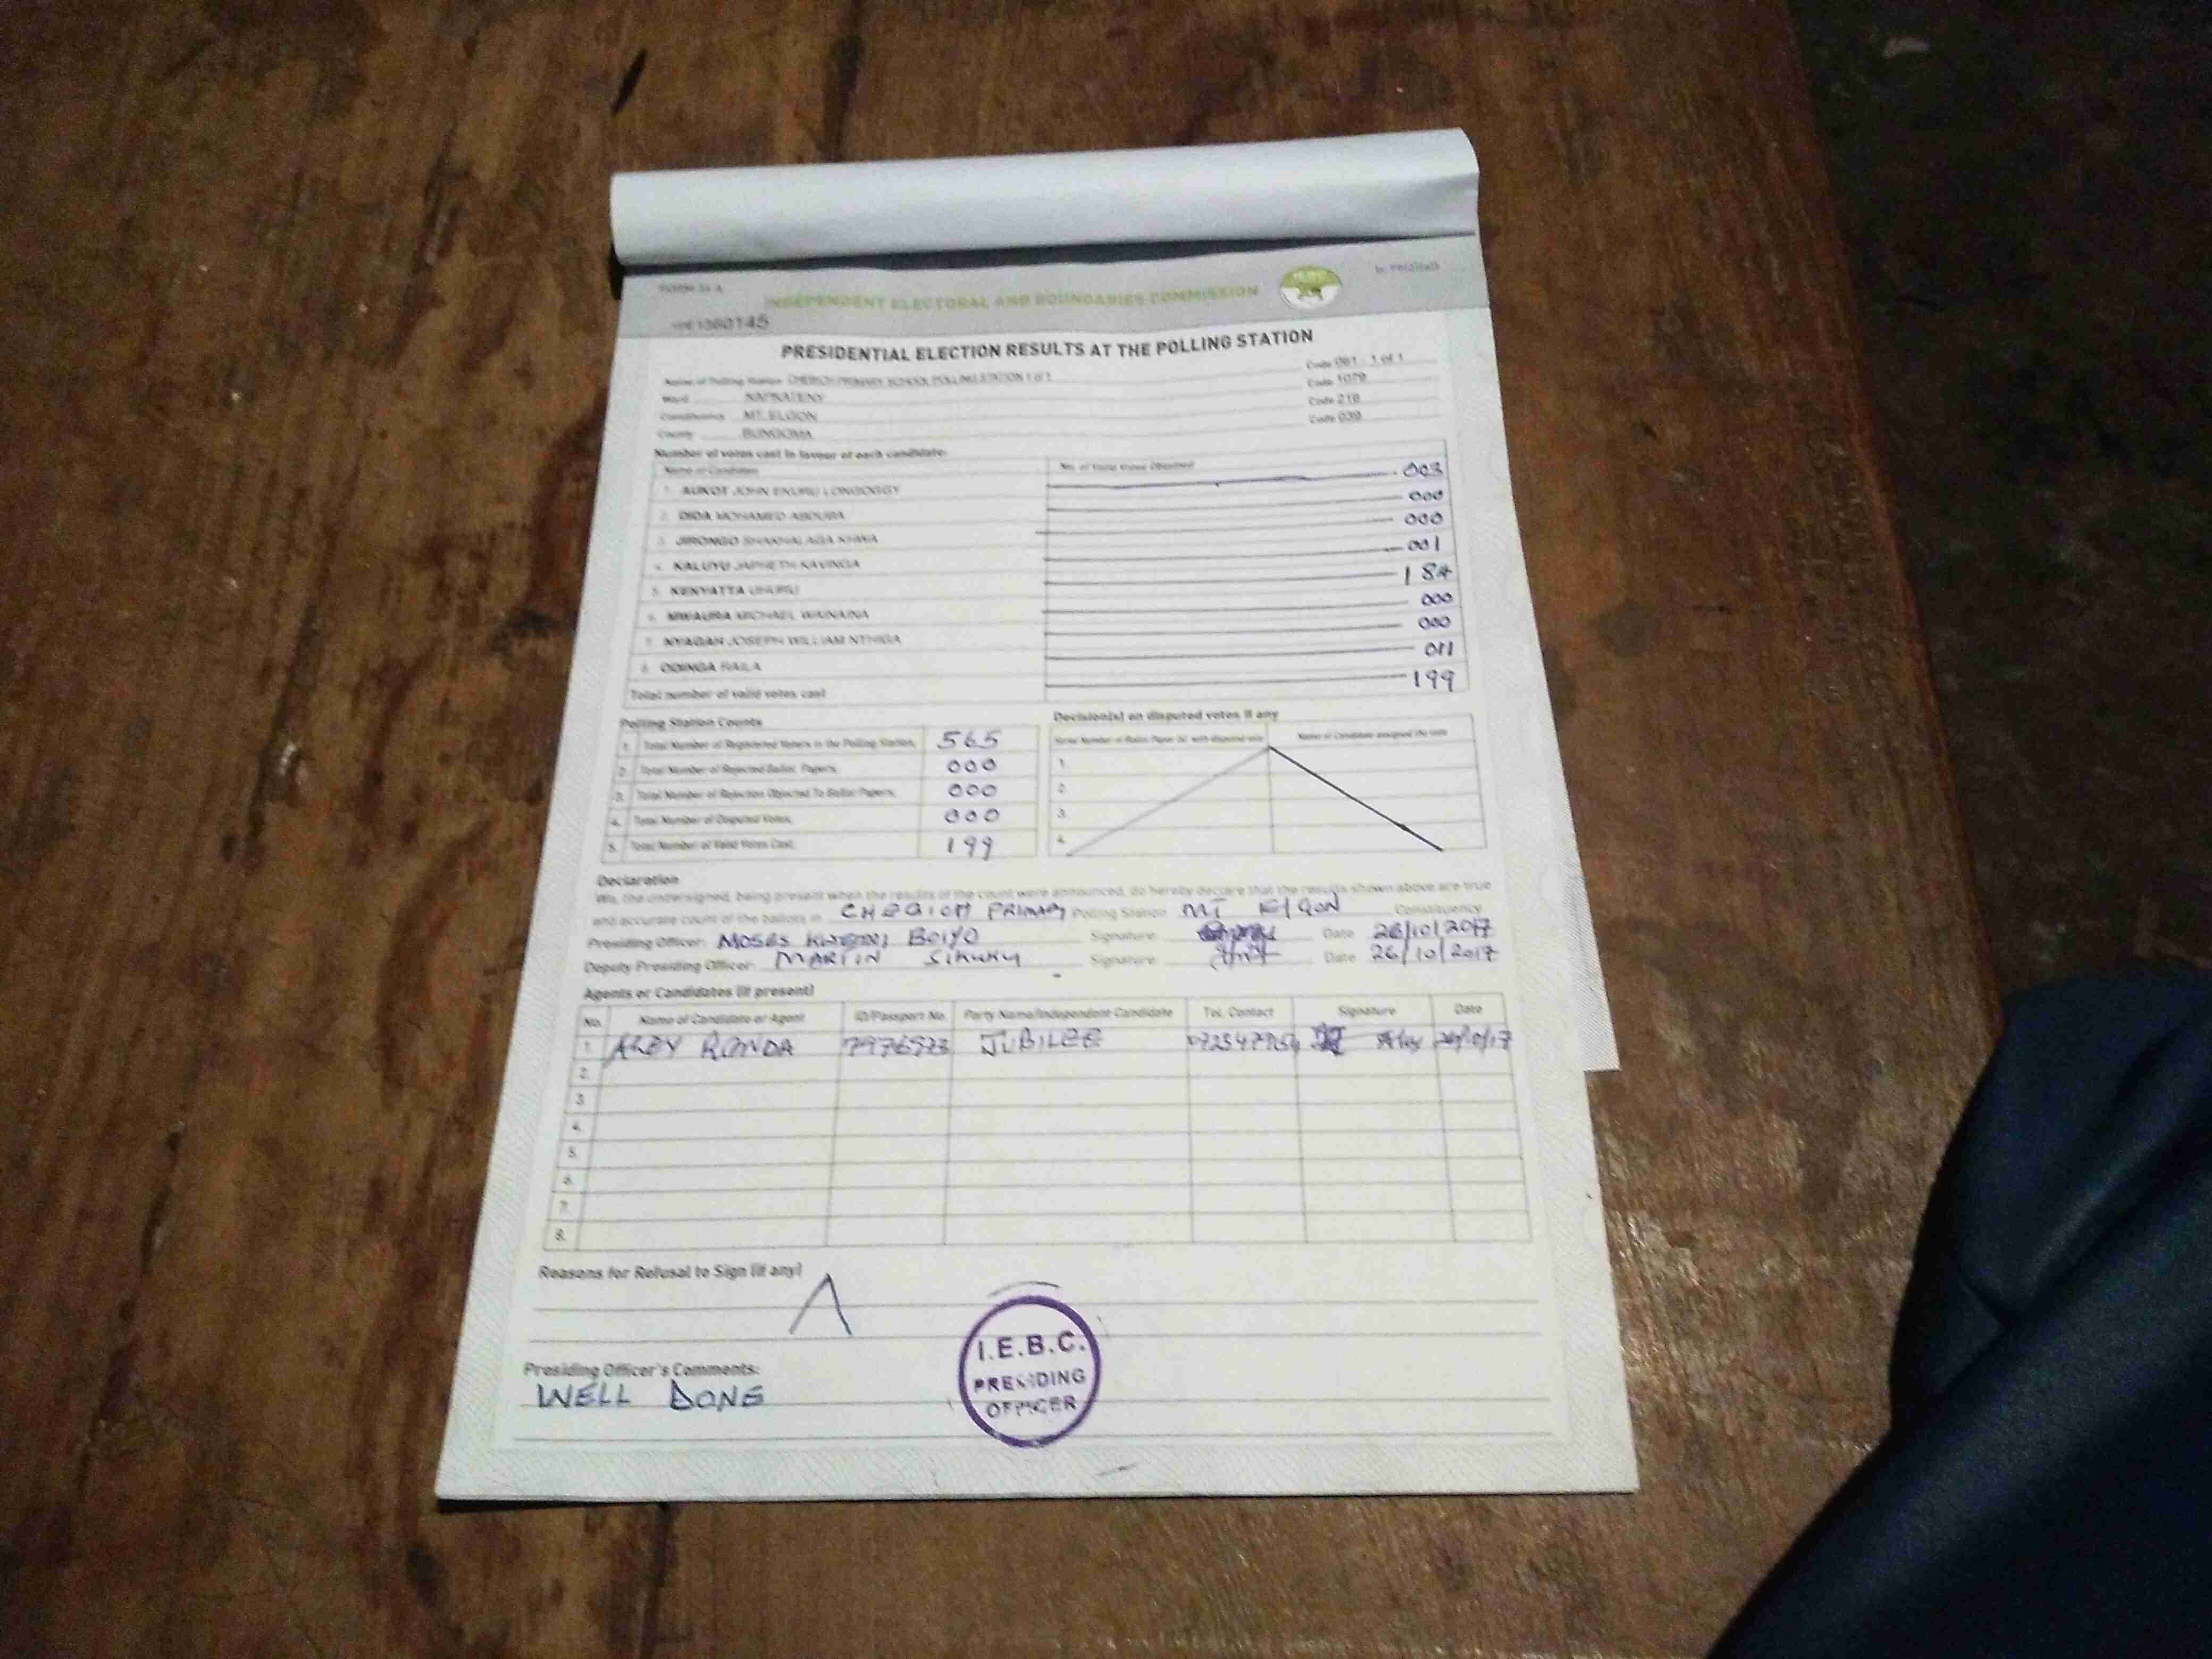 FORM 34 A
INDEPENDENT ELECTORAL AND BOUNDARIES COMMISSION
PRESIDENTIAL ELECTION RESULTS AT THE POLLING STATION
Name of Polling Station PRIMARY SCHOOL POLLING STATION 1 of 1 Code 061 - 1 of 1
Ward KAPKATENY Code 1079
Constituency MT. ELGON Code 216
County BUNGOMA Code 039
Number of votes cast in favour of each candidate:
Name of Candidate No. of Valid Votes Obtained
1. AUKOT JOHN EKURU LONGOGGY 003
2. DIDA MOHAMED ABDUBA 000
3. JIRONGO SHAKHALAGA KHWA 000
4. KALUYU JAPHETH KAVINGA 001
5. KENYATTA UHURU 184
6. MWAURA MICHAEL WAINAINA 000
7. NYAGAH JOSEPH WILLIAM NTHIGA 000
8. ODINGA RAILA 011
Total number of valid votes cast 199
Polling Station Counts
1. Total Number of Registered Voters in the Polling Station, 565
2. Total Number of Rejected Ballot Papers, 000
3. Total Number of Rejection Objected To Ballot Papers, 000
4. Total Number of Disputed Votes, 000
5. Total Number of Valid Votes Cast, 199
Decision(s) on disputed votes if any
Serial Number of Ballot Paper (s) with disputed vote Name of Candidate assigned the vote
1.
2.
3.
4.
Declaration
We, the undersigned, being present when the results of the count were announced, do hereby declare that the results shown above are true
and accurate count of the ballots in PRIMARY Polling Station MT ELGON Constituency
Presiding Officer: MOSES BOIYO Signature: Date 26/10/2017
Deputy Presiding Officer: MARTIN SIKUKU Signature: Date 26/10/2017
Agents or Candidates (if present)
No. Name of Candidate or Agent ID/Passport No. Party Name/Independent Candidate Tel. Contact Signature Date
1. RONDA JUBILEE 26/10/17
2.
3.
4.
5.
6.
7.
8.
Reasons for Refusal to Sign (if any)
Presiding Officer's Comments:
WELL DONE
I.E.B.C.
PRESIDING
OFFICER